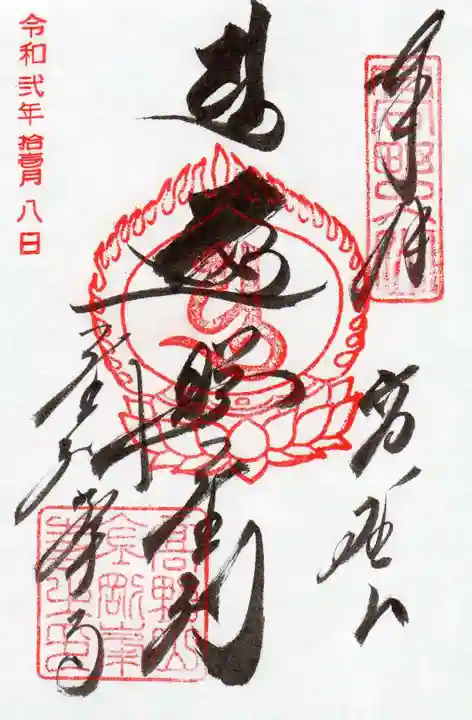 奉拝
高野山
遍照金剛
金剛峯寺
高野山
金剛峯
寺之印
令和弐年拾壹月八日